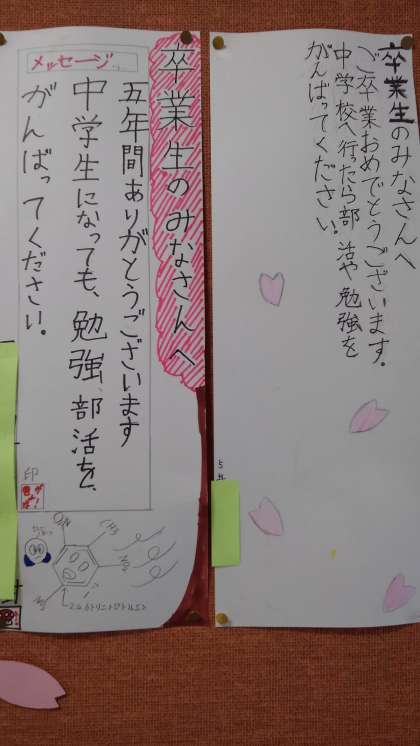 卒業生のみなさんへ
ご卒業おめでとうございます。
中学校へ行ったら部活や勉強を
がんばってください。
卒業生のみなさんへ
五年間ありがとうございます
中学生になっても、勉強、部活を、
がんばってください。
メッセージ
印